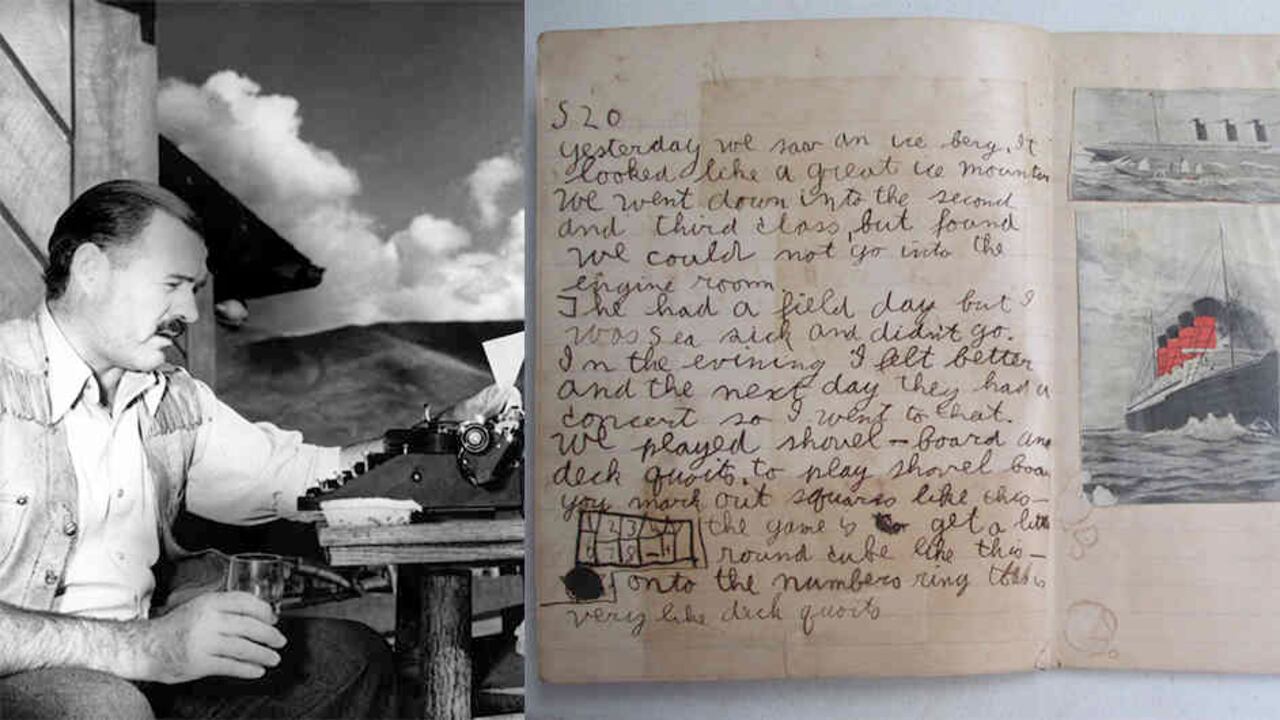 S 20
yesterday we saw an ice berg. It
looked like a great ice mounten
We went down into the second
and third class, but found
we could not go into the
engine room.
The had a field day but I
was sea sick and didn't go.
In the evening I felt better
and the next day they had a
concert so I went to that.
We played shovel-board and
deck quoits. to play shovel boa
you mark out squares like this—
1 2 3
the game is get a litt
7 8
round cube like this—
onto the numbers ring this is
very like deck quoits